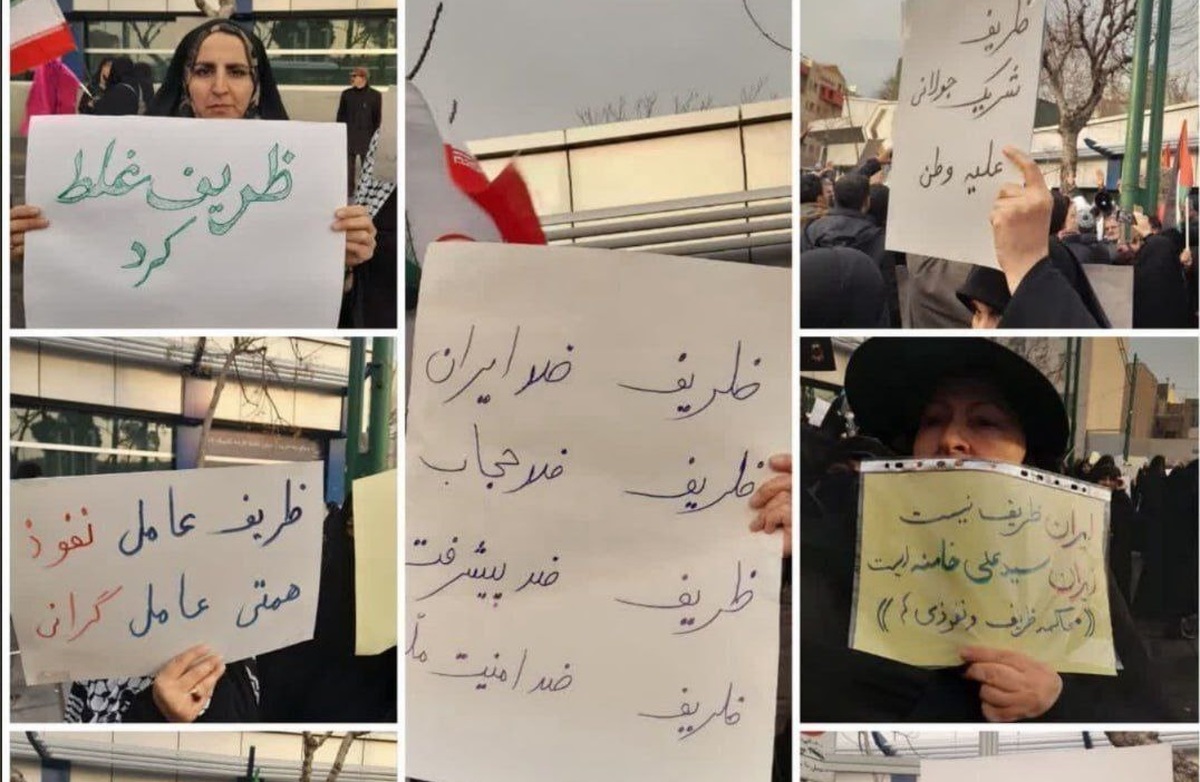 ظریف غلط
کرد
ظریف ضد ایران
ظریف ضد حجاب
ظریف ضد پیشرفت
ظریف ضد امنیت
ظریف
شریک جولانی
علیه وطن
ظریف عامل نفوذ
همتی عامل گرانی
ایران ظریف نیست
ایران سید علی خامنه ایست
((محاکمه ظریف و نفوذی ))